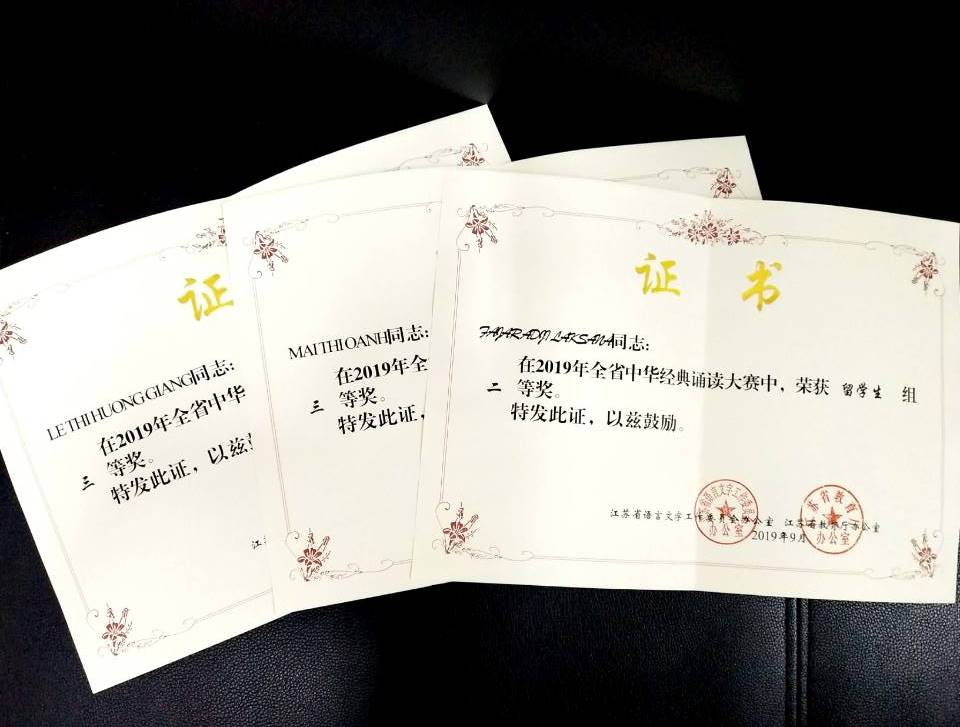 证
LE THI HUONG GIANG同志:
在2019年全省中华
三 等奖。
特发此证，以兹
MAI THI OANH同志:
在2019年全
三 等奖。
特发此证，
证 书
FAJAR ADJI LAKSANA同志:
在2019年全省中华经典诵读大赛中，荣获 留学生 组
二 等奖。
特发此证，以兹鼓励。
江苏省语言文字工作委员会办公室 江苏省教育厅办公室
2019年9月
办公室
苏省教育
办公室